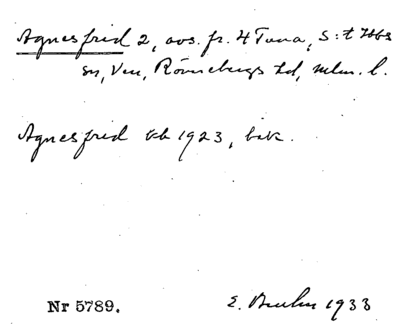 Agnesfrid 2, avs. fr. 4 Tuna, S:t Ibs
sn, Ven, Rönnebergs hd, Mlm. l.
Agnesfrid tk 1923, bik.
Nr 5789.
E. Bruhn 1933